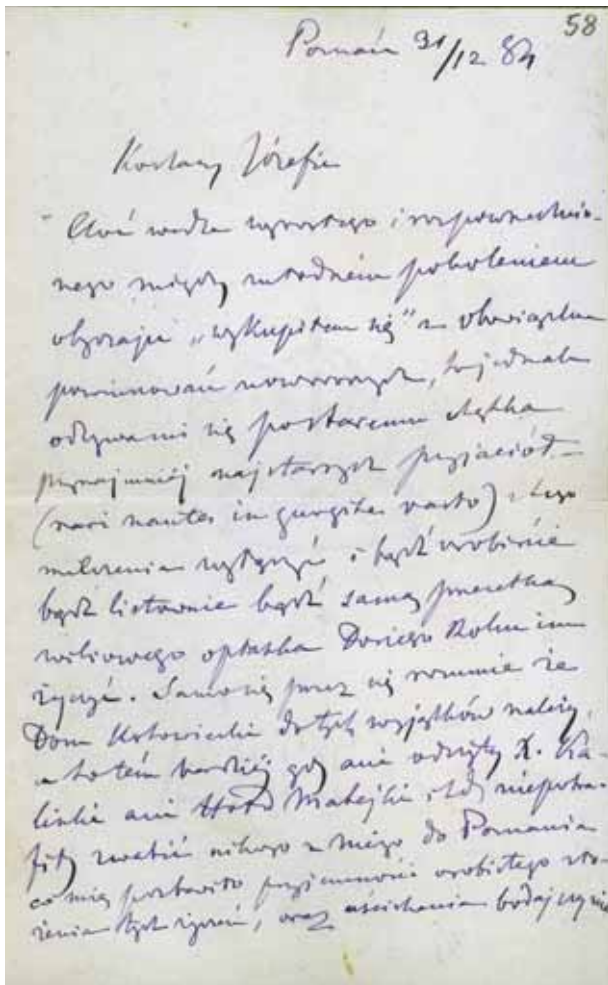 58
Poznań 31/12 84
Kochany Józefie
Choć wedle wzrostego i rozpowszechnio-
nego między młodszém pokoleniem
obyczaju „wykupiłem się" z obowiązku
powinszowań noworocznych, to jednak
odzywa mi się postaremu chętka
przynajmniej najstarszych przyjaciół
(rari nantes in gurgite vasto) z tego
milczenia wyłączyć i bądź osobiście
bądź listownie bądź samą przesełką
wiliowego opłatka Dosiego Roku im
życzyć. Samo się przez się rozumie że
Dom do tych wyjątków należy,
a to tém bardziej gdy ani odczyty X. Ka-
linki ani Hołd Matejki itd. niepotra-
fiły zwabić nikogo z niego do Poznania
co mię pozbawiło przyjemności osobistego zło-
żenia tych życzeń, oraz uściskania bodaj